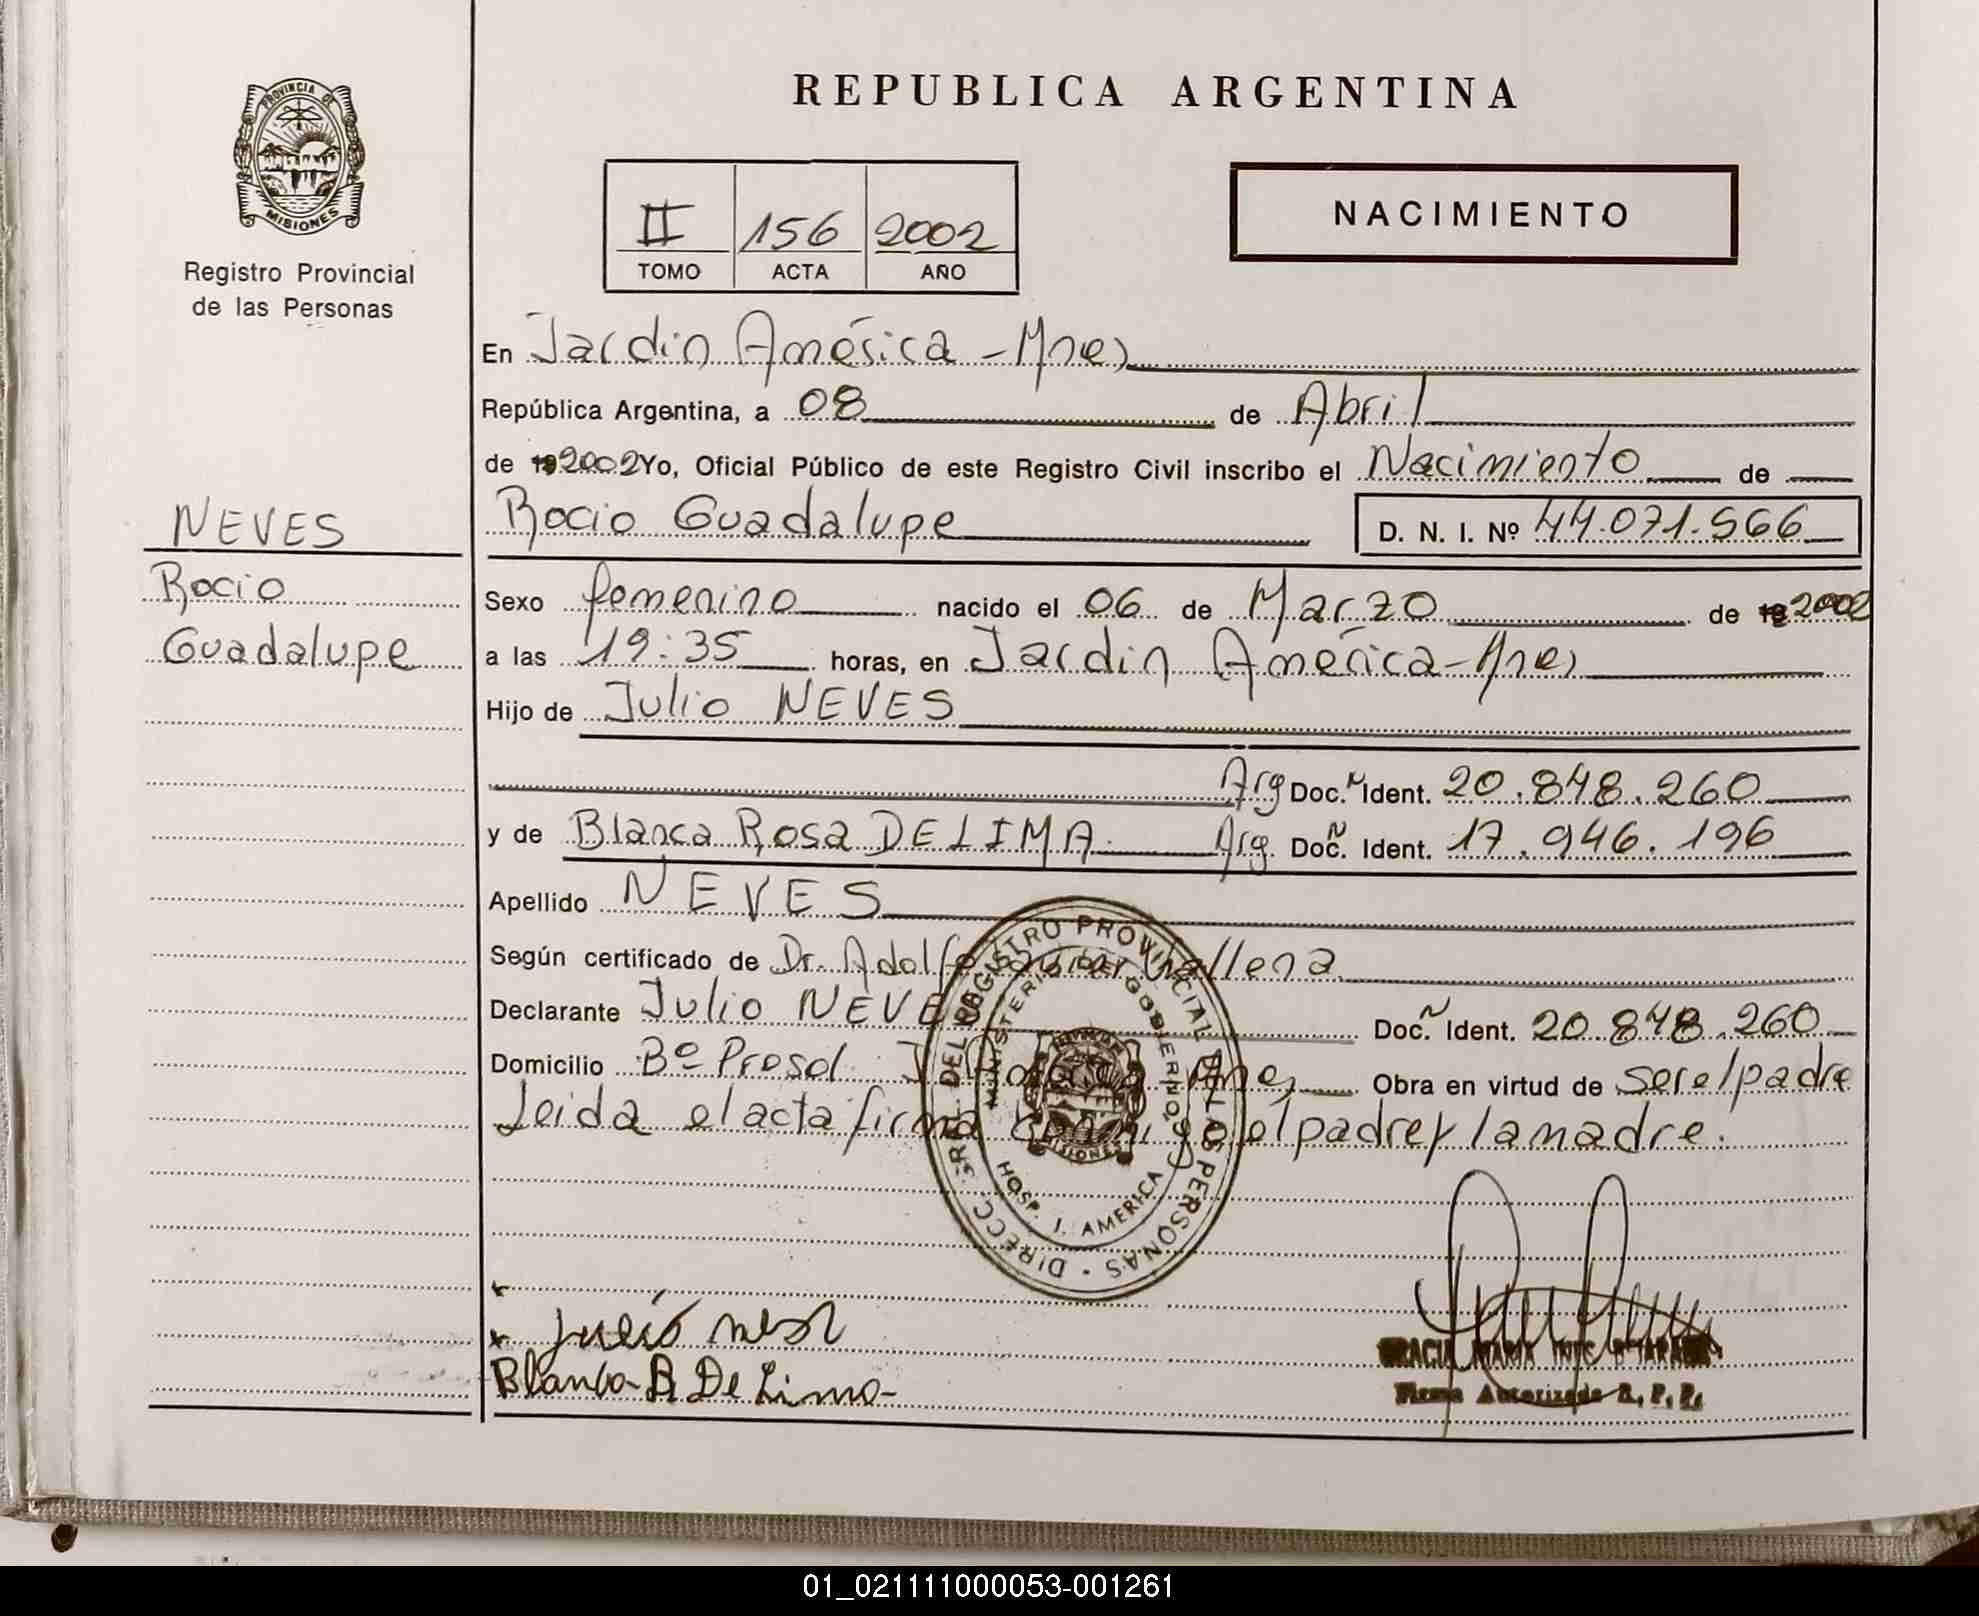 REPUBLICA ARGENTINA
PROVINCIA DE
MISIONES
Registro Provincial
de las Personas
II 156 2002
TOMO ACTA AÑO
NACIMIENTO
En Jardin América - Mnes
República Argentina, a 08 de Abril
de 19 2002 Yo, Oficial Público de este Registro Civil inscribo el Nacimiento de
Rocio Guadalupe D. N. I. Nº 44.071.566
NEVES
Rocio
Guadalupe
Sexo femenino nacido el 06 de Marzo de 19 2002
a las 19:35 horas, en Jardin América - Mnes
Hijo de Julio NEVES
Arg Doc. N Ident. 20.848.260
y de Blanca Rosa DE LIMA Arg. Doc. N Ident. 17.946.196
Apellido NEVES
Según certificado de Dr. Adolfo
Declarante Julio NEVES Doc. N Ident. 20.848.260
Domicilio Bº Prosol J. América Mnes Obra en virtud de ser el padre
Leida el acta firma conmigo el padre y la madre.
DIRECC. GRAL. DEL REGISTRO PROVINCIAL DE LAS PERSONAS
MINISTERIO DE GOBIERNO
PROVINCIA DE
MISIONES
HOSP. J. AMERICA
Blanca R De Lima
Firma Autorizada R. P. P.
01_021111000053-001261